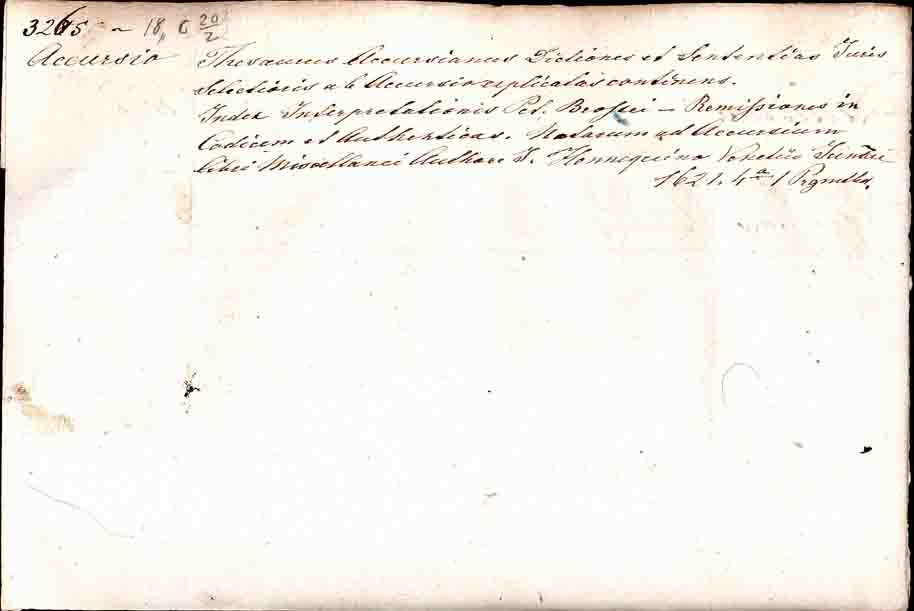 3265 ~ 18, C 20/2
Accursio Thesaurus Accursianus Dictiones et Sententias Juris
Selectioris ab Accursio explicatas continens.
Index Interpretationis Pet. Brossei — Remissiones in
Codicem et Authenticas. Notarum ad Accursium
libri Miscellanei Authore J. Hennequino Venetiis
1621. 4a 1